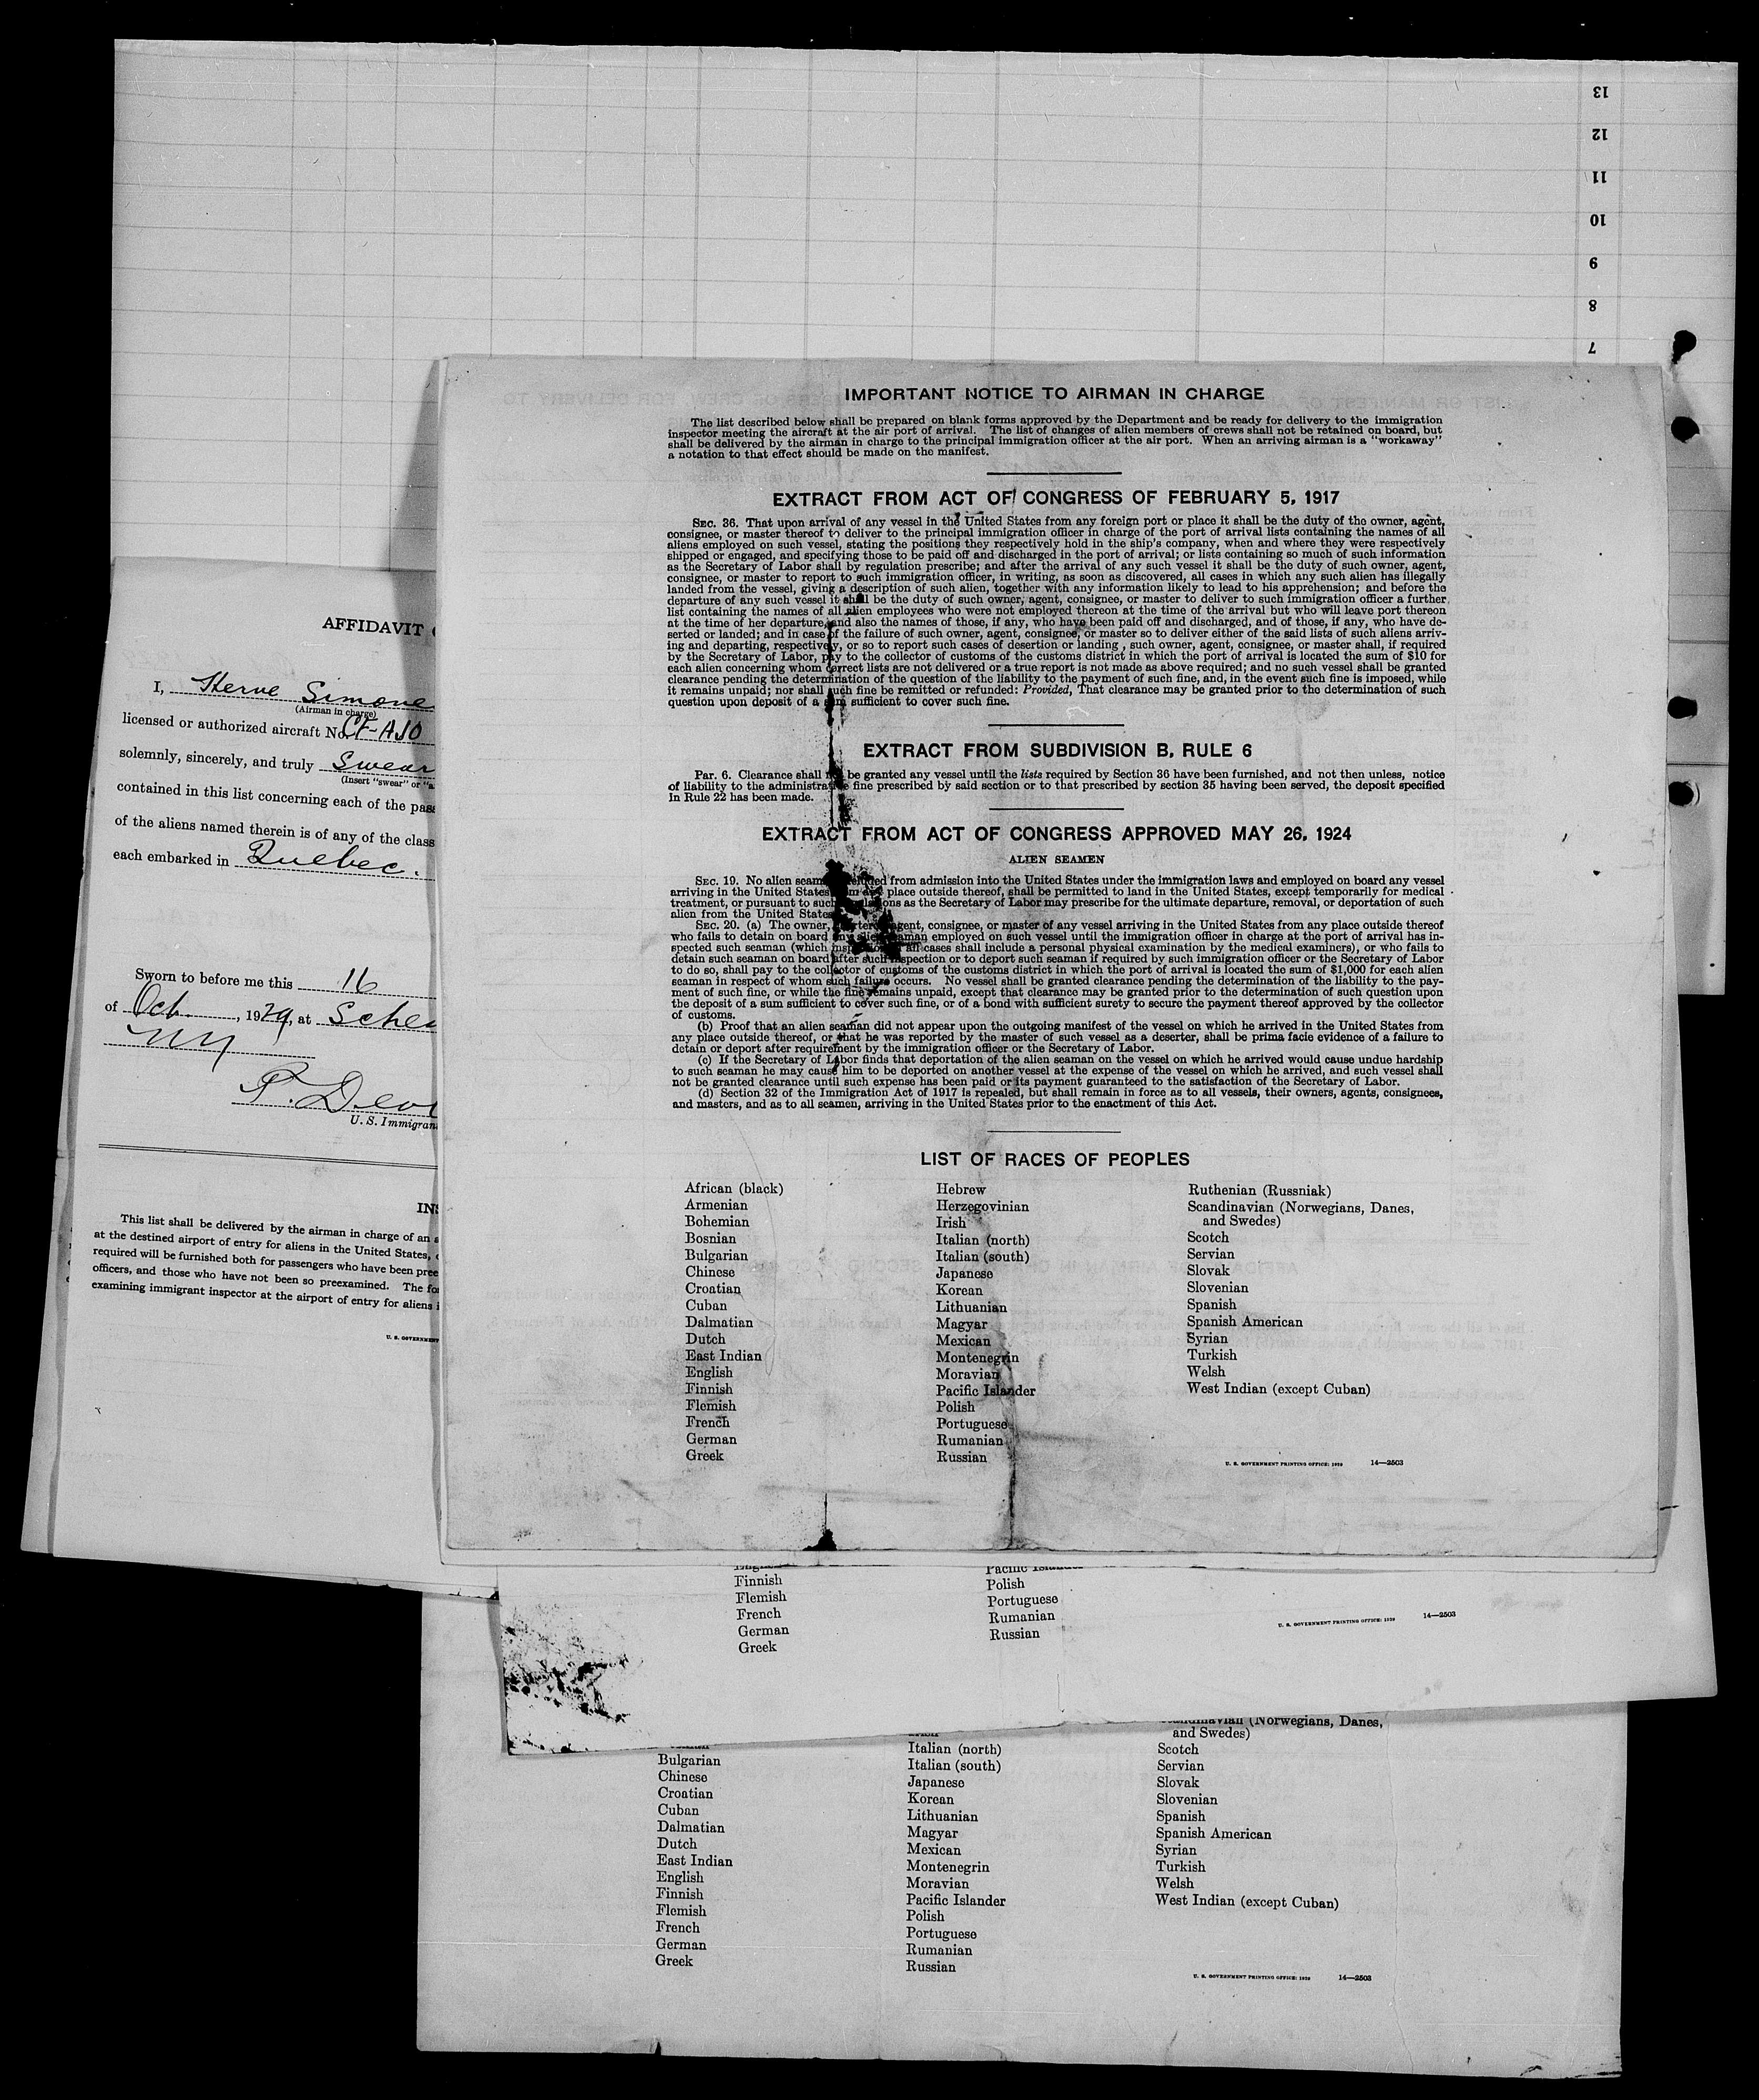 13
12
11
10
9
8
7
AFFIDAVIT
I, Herve Simone
(Airman in charge)
licensed or authorized aircraft No. CF-AJO
solemnly, sincerely, and truly Swear
(Insert "swear" or "a
contained in this list concerning each of the pas
of the aliens named therein is of any of the class
each embarked in Quebec.
Sworn to before me this 16
of Oct., 1929, at Schen
NY
U. S. Immigran
INS
This list shall be delivered by the airman in charge of an a
at the destined airport of entry for aliens in the United States,
required will be furnished both for passengers who have been pree
officers, and those who have not been so preexamined. The fo
examining immigrant inspector at the airport of entry for aliens i
U. S. GOVERNMENT
IMPORTANT NOTICE TO AIRMAN IN CHARGE
The list described below shall be prepared on blank forms approved by the Department and be ready for delivery to the immigration
inspector meeting the aircraft at the air port of arrival. The list of changes of alien members of crews shall not be retained on board, but
shall be delivered by the airman in charge to the principal immigration officer at the air port. When an arriving airman is a "workaway"
a notation to that effect should be made on the manifest.
EXTRACT FROM ACT OF CONGRESS OF FEBRUARY 5, 1917
SEC. 36. That upon arrival of any vessel in the United States from any foreign port or place it shall be the duty of the owner, agent,
consignee, or master thereof to deliver to the principal immigration officer in charge of the port of arrival lists containing the names of all
aliens employed on such vessel, stating the positions they respectively hold in the ship's company, when and where they were respectively
shipped or engaged, and specifying those to be paid off and discharged in the port of arrival; or lists containing so much of such information
as the Secretary of Labor shall by regulation prescribe; and after the arrival of any such vessel it shall be the duty of such owner, agent,
consignee, or master to report to such immigration officer, in writing, as soon as discovered, all cases in which any such alien has illegally
landed from the vessel, giving a description of such alien, together with any information likely to lead to his apprehension; and before the
departure of any such vessel it shall be the duty of such owner, agent, consignee, or master to deliver to such immigration officer a further
list containing the names of all alien employees who were not employed thereon at the time of the arrival but who will leave port thereon
at the time of her departure, and also the names of those, if any, who have been paid off and discharged, and of those, if any, who have de-
serted or landed; and in case of the failure of such owner, agent, consignee, or master so to deliver either of the said lists of such aliens arriv-
ing and departing, respectively, or so to report such cases of desertion or landing , such owner, agent, consignee, or master shall, if required
by the Secretary of Labor, pay to the collector of customs of the customs district in which the port of arrival is located the sum of $10 for
each alien concerning whom correct lists are not delivered or a true report is not made as above required; and no such vessel shall be granted
clearance pending the determination of the question of the liability to the payment of such fine, and, in the event such fine is imposed, while
it remains unpaid; nor shall such fine be remitted or refunded: Provided, That clearance may be granted prior to the determination of such
question upon deposit of a sum sufficient to cover such fine.
EXTRACT FROM SUBDIVISION B, RULE 6
Par. 6. Clearance shall not be granted any vessel until the lists required by Section 36 have been furnished, and not then unless, notice
of liability to the administrative fine prescribed by said section or to that prescribed by section 35 having been served, the deposit specified
in Rule 22 has been made.
EXTRACT FROM ACT OF CONGRESS APPROVED MAY 26, 1924
ALIEN SEAMEN
SEC. 19. No alien seaman excluded from admission into the United States under the immigration laws and employed on board any vessel
arriving in the United States from any place outside thereof, shall be permitted to land in the United States, except temporarily for medical
treatment, or pursuant to such regulations as the Secretary of Labor may prescribe for the ultimate departure, removal, or deportation of such
alien from the United States
SEC. 20. (a) The owner, charterer, agent, consignee, or master of any vessel arriving in the United States from any place outside thereof
who fails to detain on board any alien seaman employed on such vessel until the immigration officer in charge at the port of arrival has in-
spected such seaman (which inspection in all cases shall include a personal physical examination by the medical examiners), or who fails to
detain such seaman on board after such inspection or to deport such seaman if required by such immigration officer or the Secretary of Labor
to do so, shall pay to the collector of customs of the customs district in which the port of arrival is located the sum of $1,000 for each alien
seaman in respect of whom such failure occurs. No vessel shall be granted clearance pending the determination of the liability to the pay-
ment of such fine, or while the fine remains unpaid, except that clearance may be granted prior to the determination of such question upon
the deposit of a sum sufficient to cover such fine, or of a bond with sufficient surety to secure the payment thereof approved by the collector
of customs.
(b) Proof that an alien seaman did not appear upon the outgoing manifest of the vessel on which he arrived in the United States from
any place outside thereof, or that he was reported by the master of such vessel as a deserter, shall be prima facie evidence of a failure to
detain or deport after requirement by the immigration officer or the Secretary of Labor.
(c) If the Secretary of Labor finds that deportation of the alien seaman on the vessel on which he arrived would cause undue hardship
to such seaman he may cause him to be deported on another vessel at the expense of the vessel on which he arrived, and such vessel shall
not be granted clearance until such expense has been paid or its payment guaranteed to the satisfaction of the Secretary of Labor.
(d) Section 32 of the Immigration Act of 1917 is repealed, but shall remain in force as to all vessels, their owners, agents, consignees,
and masters, and as to all seamen, arriving in the United States prior to the enactment of this Act.
LIST OF RACES OF PEOPLES
African (black)
Armenian
Bohemian
Bosnian
Bulgarian
Chinese
Croatian
Cuban
Dalmatian
Dutch
East Indian
English
Finnish
Flemish
French
German
Greek
Hebrew
Herzegovinian
Irish
Italian (north)
Italian (south)
Japanese
Korean
Lithuanian
Magyar
Mexican
Montenegrin
Moravian
Pacific Islander
Polish
Portuguese
Rumanian
Russian
Ruthenian (Russniak)
Scandinavian (Norwegians, Danes,
and Swedes)
Scotch
Servian
Slovak
Slovenian
Spanish
Spanish American
Syrian
Turkish
Welsh
West Indian (except Cuban)
U. S. GOVERNMENT PRINTING OFFICE: 1929 14—2503
Finnish
Flemish
French
German
Greek
Pacific
Polish
Portuguese
Rumanian
Russian
U. S. GOVERNMENT PRINTING OFFICE: 1929 14—2503
Bulgarian
Chinese
Croatian
Cuban
Dalmatian
Dutch
East Indian
English
Finnish
Flemish
French
German
Greek
Italian (north)
Italian (south)
Japanese
Korean
Lithuanian
Magyar
Mexican
Montenegrin
Moravian
Pacific Islander
Polish
Portuguese
Rumanian
Russian
(Norwegians, Danes,
and Swedes)
Scotch
Servian
Slovak
Slovenian
Spanish
Spanish American
Syrian
Turkish
Welsh
West Indian (except Cuban)
U. S. GOVERNMENT PRINTING OFFICE: 1929 14—2503